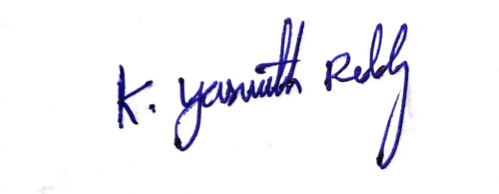 K. Yaswitth Reddy